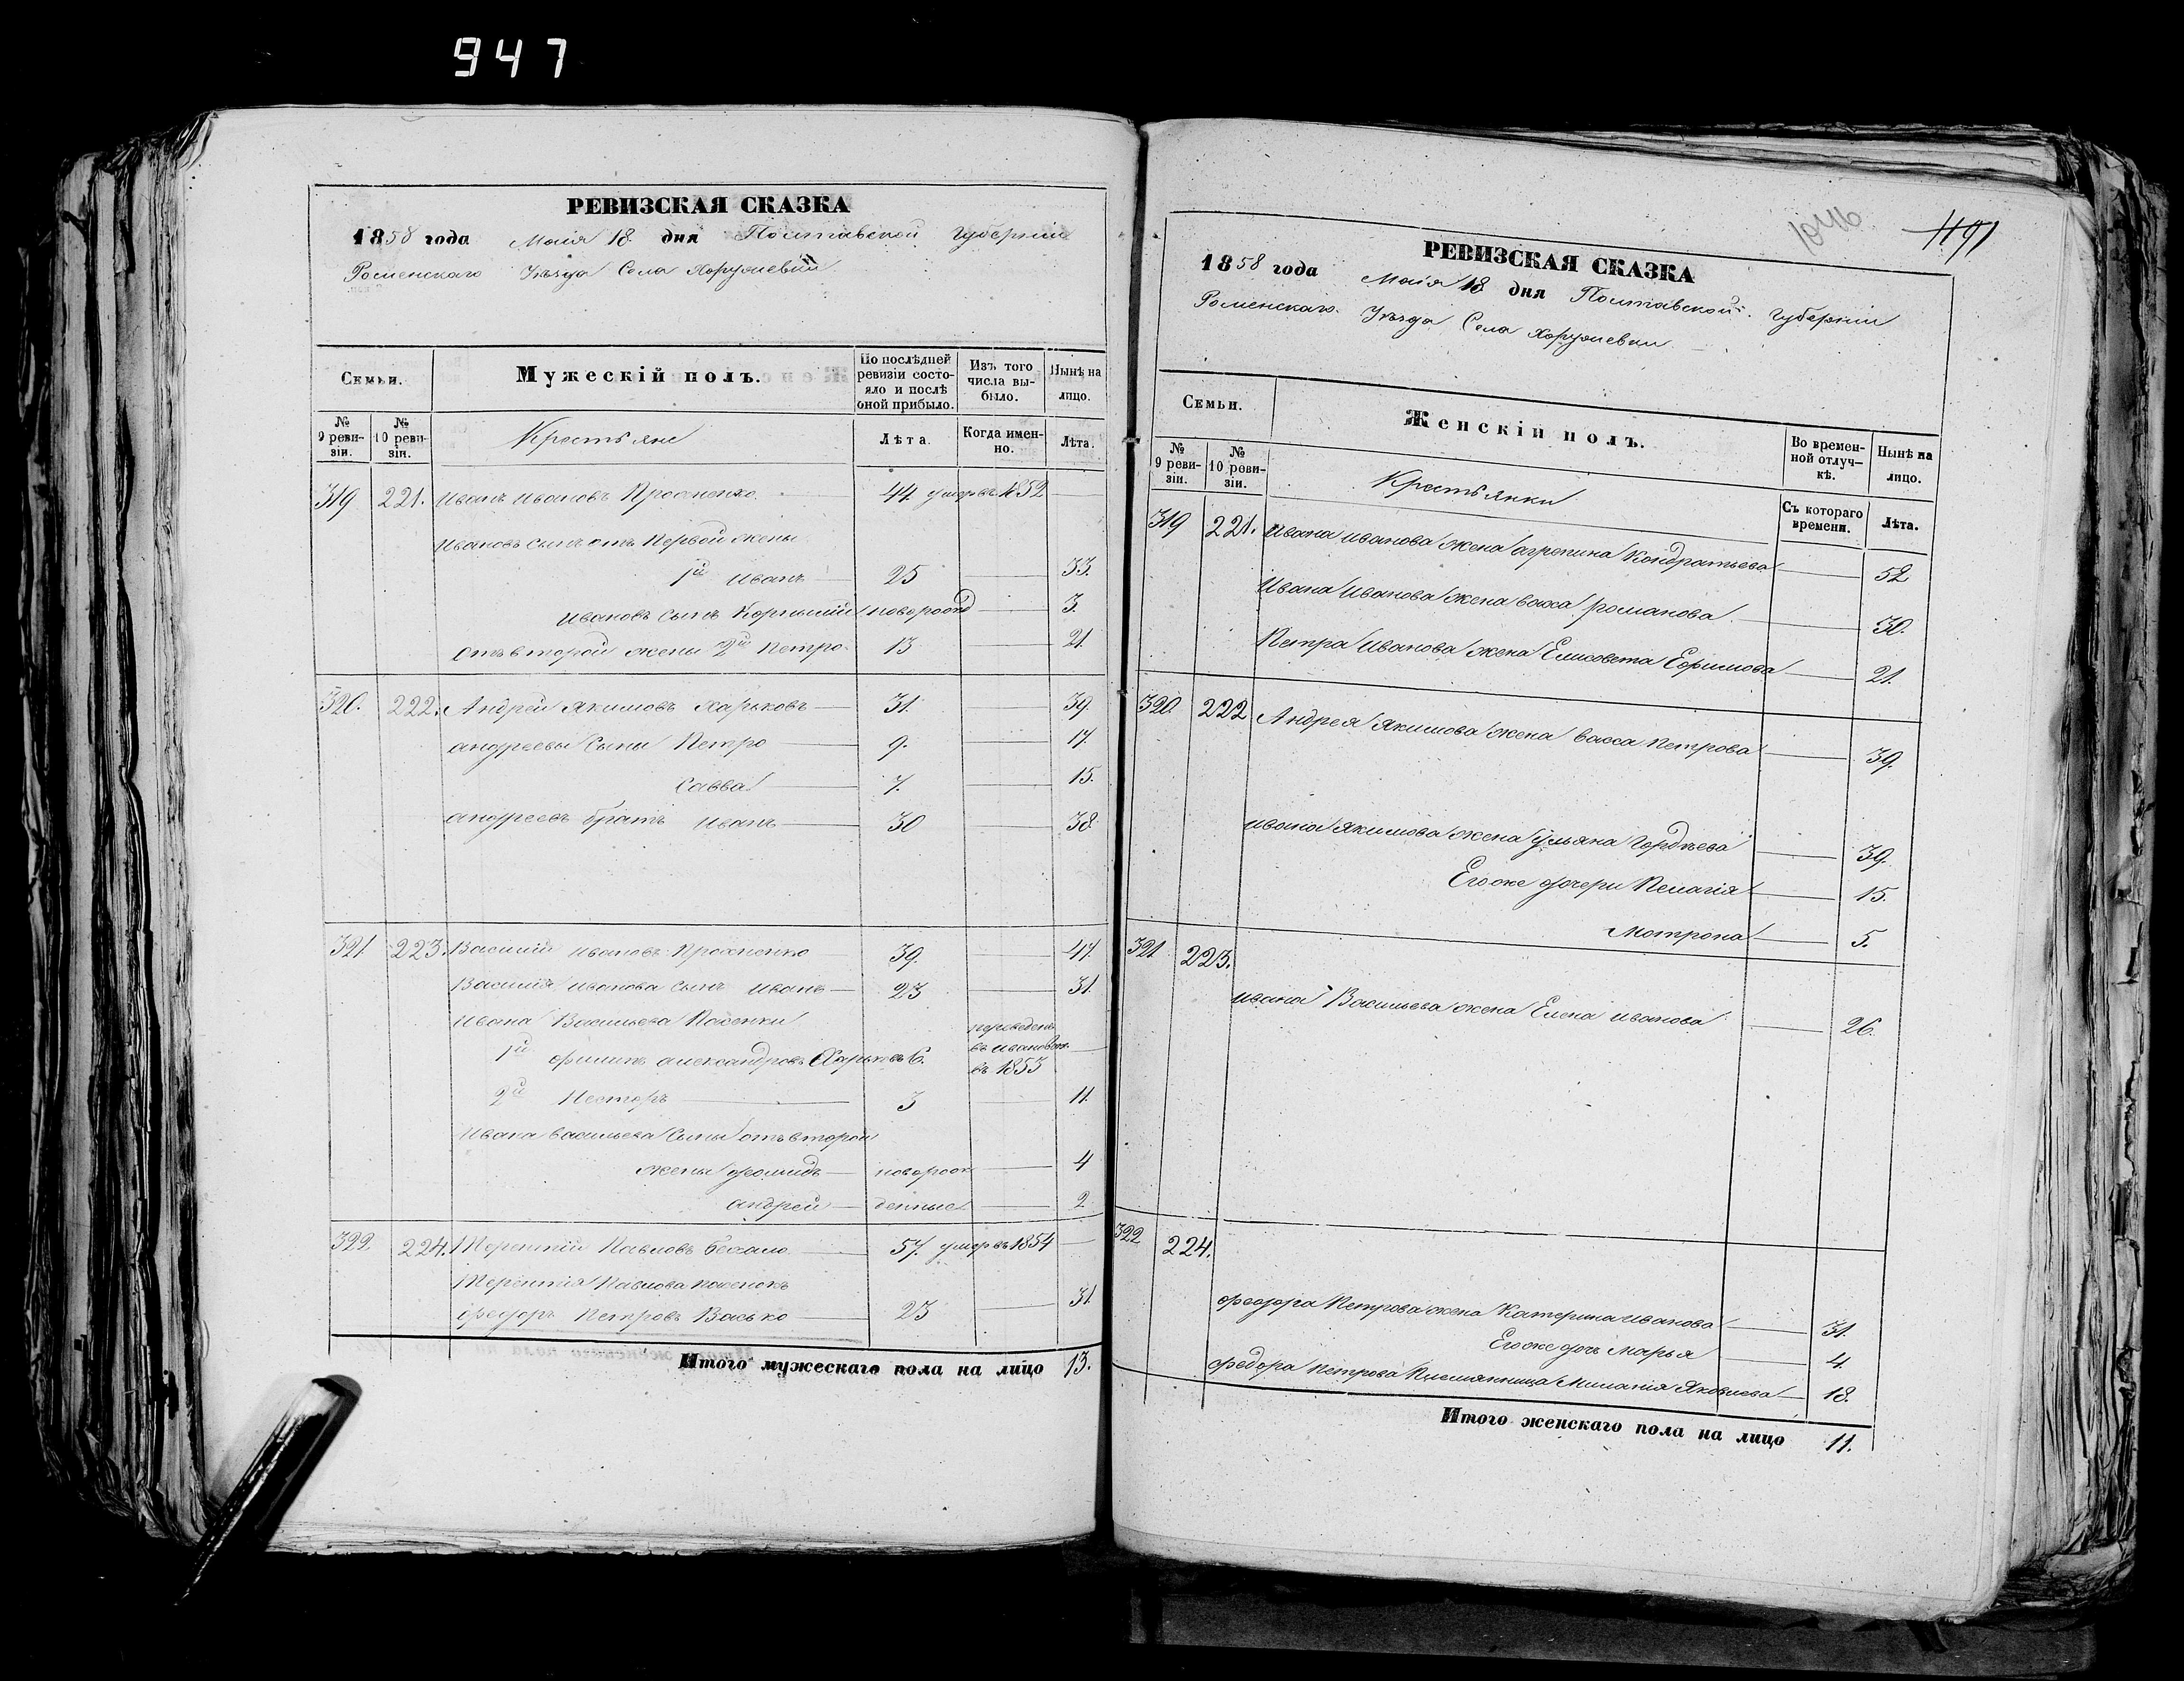 947
РЕВИЗСКАЯ СКАЗКА
1858 года Маія 18 дня Полтавской Губерніи
Роменскаго Уѣзда Села Хоружевки
Семьи.
Мужескій полъ.
По послѣдней ревизіи состояло и послѣ оной прибыло.
Изъ того числа выбыло.
Нынѣ на лицо.
№ 9 ревизіи.
№ 10 ревизіи.
Крестьяне
Лѣта.
Когда именно.
Лѣта.
319 221. Иванъ Ивановъ Прохненко 44 умеръ въ 1852
Ивановъ сынъ отъ Первой жены
1й Иванъ 25 33.
Ивановъ сынъ Корнилій новорожд 3.
отъ второй жены 2й Петро 13 21
320. 222. Андрей Якимовъ Харьковъ 31. 39
андреевы Сыны Петро 9. 17.
Савва 7. 15.
андреевъ братъ Иванъ 30 38
321. 223. Василій Ивановъ Прохненко 39. 47.
Василія Иванова Сынъ Иванъ 23 31.
Ивана Васильева Пасенки
1й филипъ александровъ Харьковъ 6. переведенъ въ 1853
2й Несторъ 3 11.
Ивана васильева Сыны отъ второй
жены новорож 4
андрей денные 2
322 224. Терентій Павловъ 57. умеръ въ 1854
Терентія Павлова пасенокъ
федоръ Петровъ Васько 23 31.
Итого мужескаго пола на лицо 13.
1046
1191
РЕВИЗСКАЯ СКАЗКА
1858 года Маія 18 дня Полтавской Губерніи
Роменскаго Уѣзда Села Хоружевки
Семьи.
Женскій полъ.
Во временной отлучкѣ.
Нынѣ на лицо.
№ 9 ревизіи.
№ 10 ревизіи.
Крестьянки
Съ котораго времени.
Лѣта.
319 221. Ивана Иванова жена агрепина Кондратьева 52
Ивана Иванова жена васса романова 30.
Петра Иванова жена Елисавета Ефимова 21.
320. 222 Андрея Якимова жена васса Петрова 39.
ивана Якимова жена Ульяна Гордѣева 39.
Егоже дочери Пелагія 15.
Мотрона 5.
321 223.
ивана Васильева жена Елена иванова 26.
322 224.
федора Петрова жена Катерина иванова 31.
Егоже дочь Марья 4.
федора петрова Племянница Миланія Яковлева 18.
Итого женскаго пола на лицо 11.